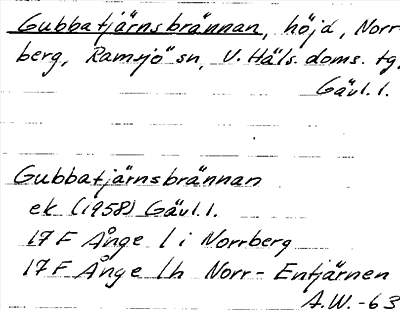 Gubbatjärnsbrännan, höjd, Norr-
berg, Ramsjö sn, V. Häls. doms. tg,
Gävl. l.
Gubbatjärnsbrännan
ek (1958) Gävl. l.
17 F Ånge 1 i Norrberg
17 F Ånge 1 h Norr-Entjärnen
A.W. -63